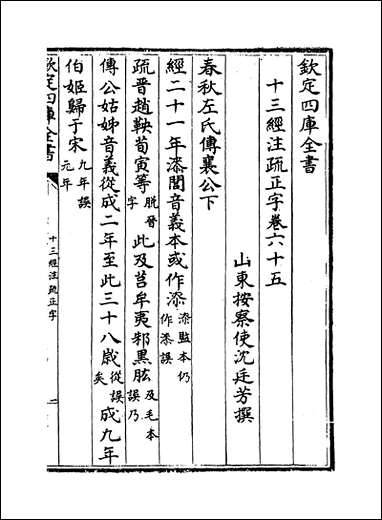 欽定四庫全書
十三經注疏正字卷六十五
山東按察使沈廷芳撰
春秋左氏傳襄公下
經二十一年漆閭音義本或作漆漆監本仍作漆誤
疏晉趙鞅荀寅等脫晉字此及莒牟夷邾黑肱及毛本誤乃
傳公姑姊音義從成二年至此三十八歲從誤矣成九年
伯姬歸于宋九年誤元年
欽定四庫全書
十三經注疏正字